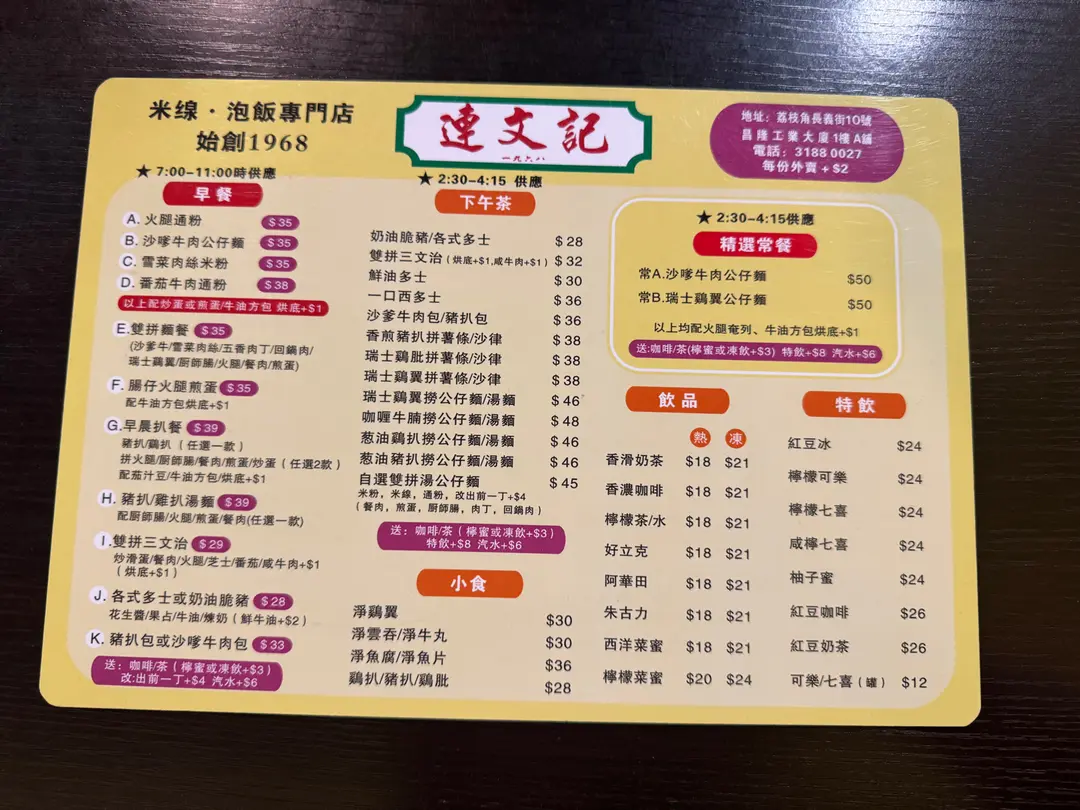 米线·泡飯專門店
始創1968
連文記
一九六八
地址：荔枝角長義街10號
昌隆工業大廈1樓A舖
電話：3188 0027
每份外賣＋$2
★ 7:00-11:00時供應
早餐
A. 火腿通粉 $35
B. 沙嗲牛肉公仔麵 $35
C. 雪菜肉絲米粉 $35
D. 番茄牛肉通粉 $38
以上配炒蛋或煎蛋/牛油方包 烘底+$1
E. 雙拼麵餐 $35
(沙嗲牛/雪菜肉絲/五香肉丁/回鍋肉/
瑞士鷄翼/厨師腸/火腿/餐肉/煎蛋)
F. 腸仔火腿煎蛋 $35
配牛油方包烘底+$1
G. 早晨扒餐 $39
豬扒/鷄扒（任選一款）
拼火腿/厨師腸/餐肉/煎蛋/炒蛋（任選2款）
配茄汁豆/牛油方包/烘底+$1
H. 豬扒/雞扒湯麵 $39
配厨師腸/火腿/煎蛋/餐肉(任選一款)
I. 雙拼三文治 $29
炒滑蛋/餐肉/火腿/芝士/番茄/咸牛肉+$1
（烘底+$1）
J. 各式多士或奶油脆豬 $28
花生醬/果占/牛油/煉奶（鮮牛油+$2）
K. 豬扒包或沙嗲牛肉包 $33
送：咖啡/茶（檸蜜或凍飲+$3）
改:出前一丁+$4 汽水+$6
★ 2:30-4:15 供應
下午茶
奶油脆豬/各式多士 $28
雙拼三文治（烘底+$1,咸牛肉+$1） $32
鮮油多士 $30
一口西多士 $36
沙爹牛肉包/豬扒包 $36
香煎豬扒拼薯條/沙律 $38
瑞士鷄肶拼薯條/沙律 $38
瑞士鷄翼拼薯條/沙律 $38
瑞士鷄翼撈公仔麵/湯麵 $46
咖喱牛腩撈公仔麵/湯麵 $48
葱油鷄扒撈公仔麵/湯麵 $46
葱油豬扒撈公仔麵/湯麵 $46
自選雙拼湯公仔麵 $45
米粉，米線，通粉，改出前一丁+$4
（餐肉，煎蛋，厨師腸，肉丁，回鍋肉）
送：咖啡/茶（檸蜜或凍飲+$3）
特飲+$8 汽水+$6
小食
淨鷄翼 $30
淨雲吞/淨牛丸 $30
淨魚腐/淨魚片 $36
鷄扒/豬扒/鷄肶 $28
★ 2:30-4:15供應
精選常餐
常A.沙嗲牛肉公仔麵 $50
常B.瑞士鷄翼公仔麵 $50
以上均配火腿奄列、牛油方包烘底+$1
送:咖啡/茶(檸蜜或凍飲+$3) 特飲+$8 汽水+$6
飲品
熱 凍
香滑奶茶 $18 $21
香濃咖啡 $18 $21
檸檬茶/水 $18 $21
好立克 $18 $21
阿華田 $18 $21
朱古力 $18 $21
西洋菜蜜 $18 $21
檸檬菜蜜 $20 $24
特飲
紅豆冰 $24
檸檬可樂 $24
檸檬七喜 $24
咸檸七喜 $24
柚子蜜 $24
紅豆咖啡 $26
紅豆奶茶 $26
可樂/七喜（罐） $12